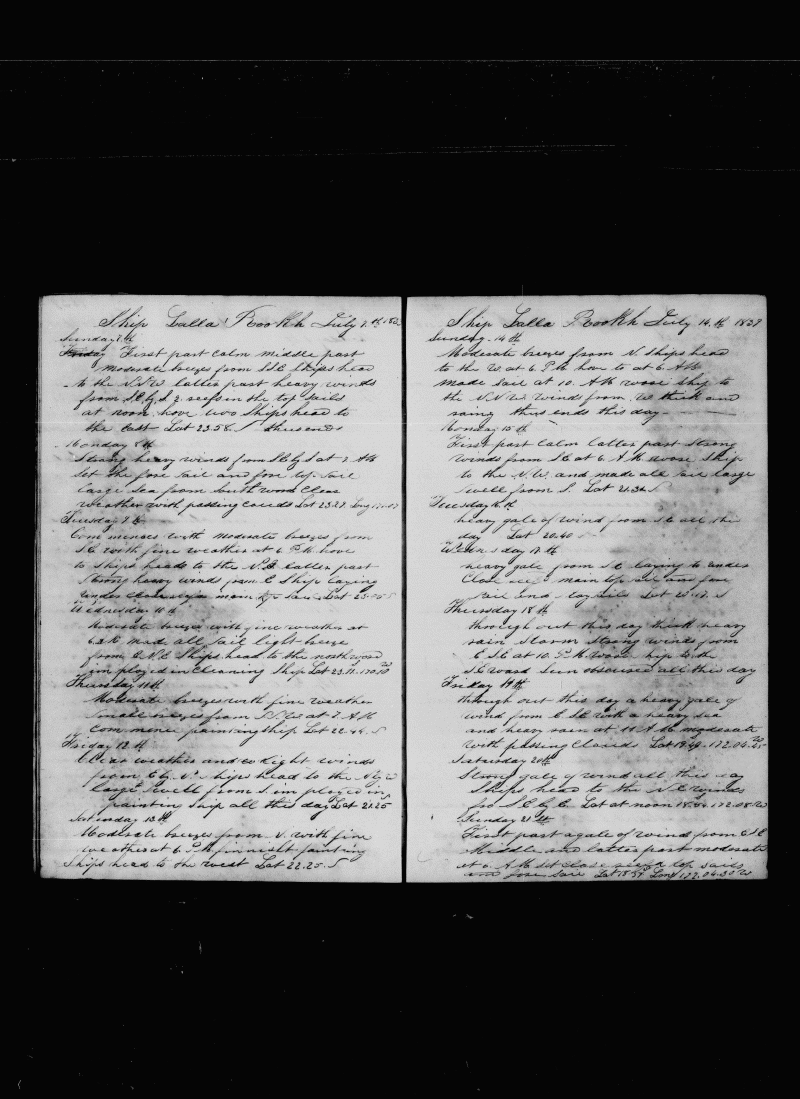 Ship Lalla Rookh July 7th 183
Sunday 7th
Friday First part Calm middle part
moderate breezes from SSE Ships head
to the NNW latter part heavy winds
from SE by S 2 reefs in the top sails
at noon hove too Ships head to
the East Lat 23.58 S thus ends
Monday 8th
Strong heavy winds from SE by S at 7 AM
Set the fore sail and fore top sail
large Sea from South ward Clear
weather with passing Clouds Lat 23.27 Long
Tuesday 9th
Commences with moderate breezes from
SE with fine weather at 6 P.M. hove
to Ships heads to the N.E latter part
Strong heavy winds from E Ship laying
under Close reef main top Sail Lat 23.05 S
Wednesday 10th
Moderate breezes with fine weather at
6 AM made all Sail light breeze
from E.N.E Ships head to the northward
imployed in Cleaning Ship Lat 23.11
Thursday 11th
Moderate breezes with fine weather
Small breezes from N.W at 7 AM
Commence painting Ship Lat 22.49 S
Friday 12th
Clear weather and light winds
from E by N Ships head to the N by W
large Swell from S. imployed in
painting Ship all this day Lat 21.25
Saturday 13th
Moderate breezes from N. with fine
weather at 6 P.M. finnisht painting
Ships head to the west Lat 22.25 S
Ship Lalla Rookh July 14th 1839
Sunday 14th
Moderate breezes from N. Ships head
to the W. at 6 P.M hove to at 6 AM
made Sail at 10 AM wore Ship to
the N.N.W. Winds from W thick and
raing thus ends this day
Monday 15th
First part Calm latter part Strong
Winds from SE at 6 A.M wore Ship
to the N.W. and made all Sail large
Swell from S. Lat 21.34 S
Tuesday 16th
heavy gale of wind from SE all this
day Lat 20.40
Wednesday 17th
heavy gale from SE laying to under
Close reef main top Sail and fore
Sail and Stay Sail Lat
Thursday 18th
through out this day thick heavy
rain Storm Strong winds from
E.SE at 10 P.M wore Ship to the
SE ward Sun obscured all this day
Friday 19th
through out this day a heavy gale of
wind from E.SE with a heavy Sea
and heavy rain at 11 AM moderate
with passing Clouds Lat 19.49 172.04.45
Saturday 20th
Strong gale of wind all this day
Ships head to the N.E winds
fro S.E by E. Lat at noon 172.08 W
Sunday 21st
First part a gale of wind from E.SE
Middle and latter part moderate
at 6 A.M Set Close reef top sails
and fore Sail Lat 18.59 Long 172.04.30 W